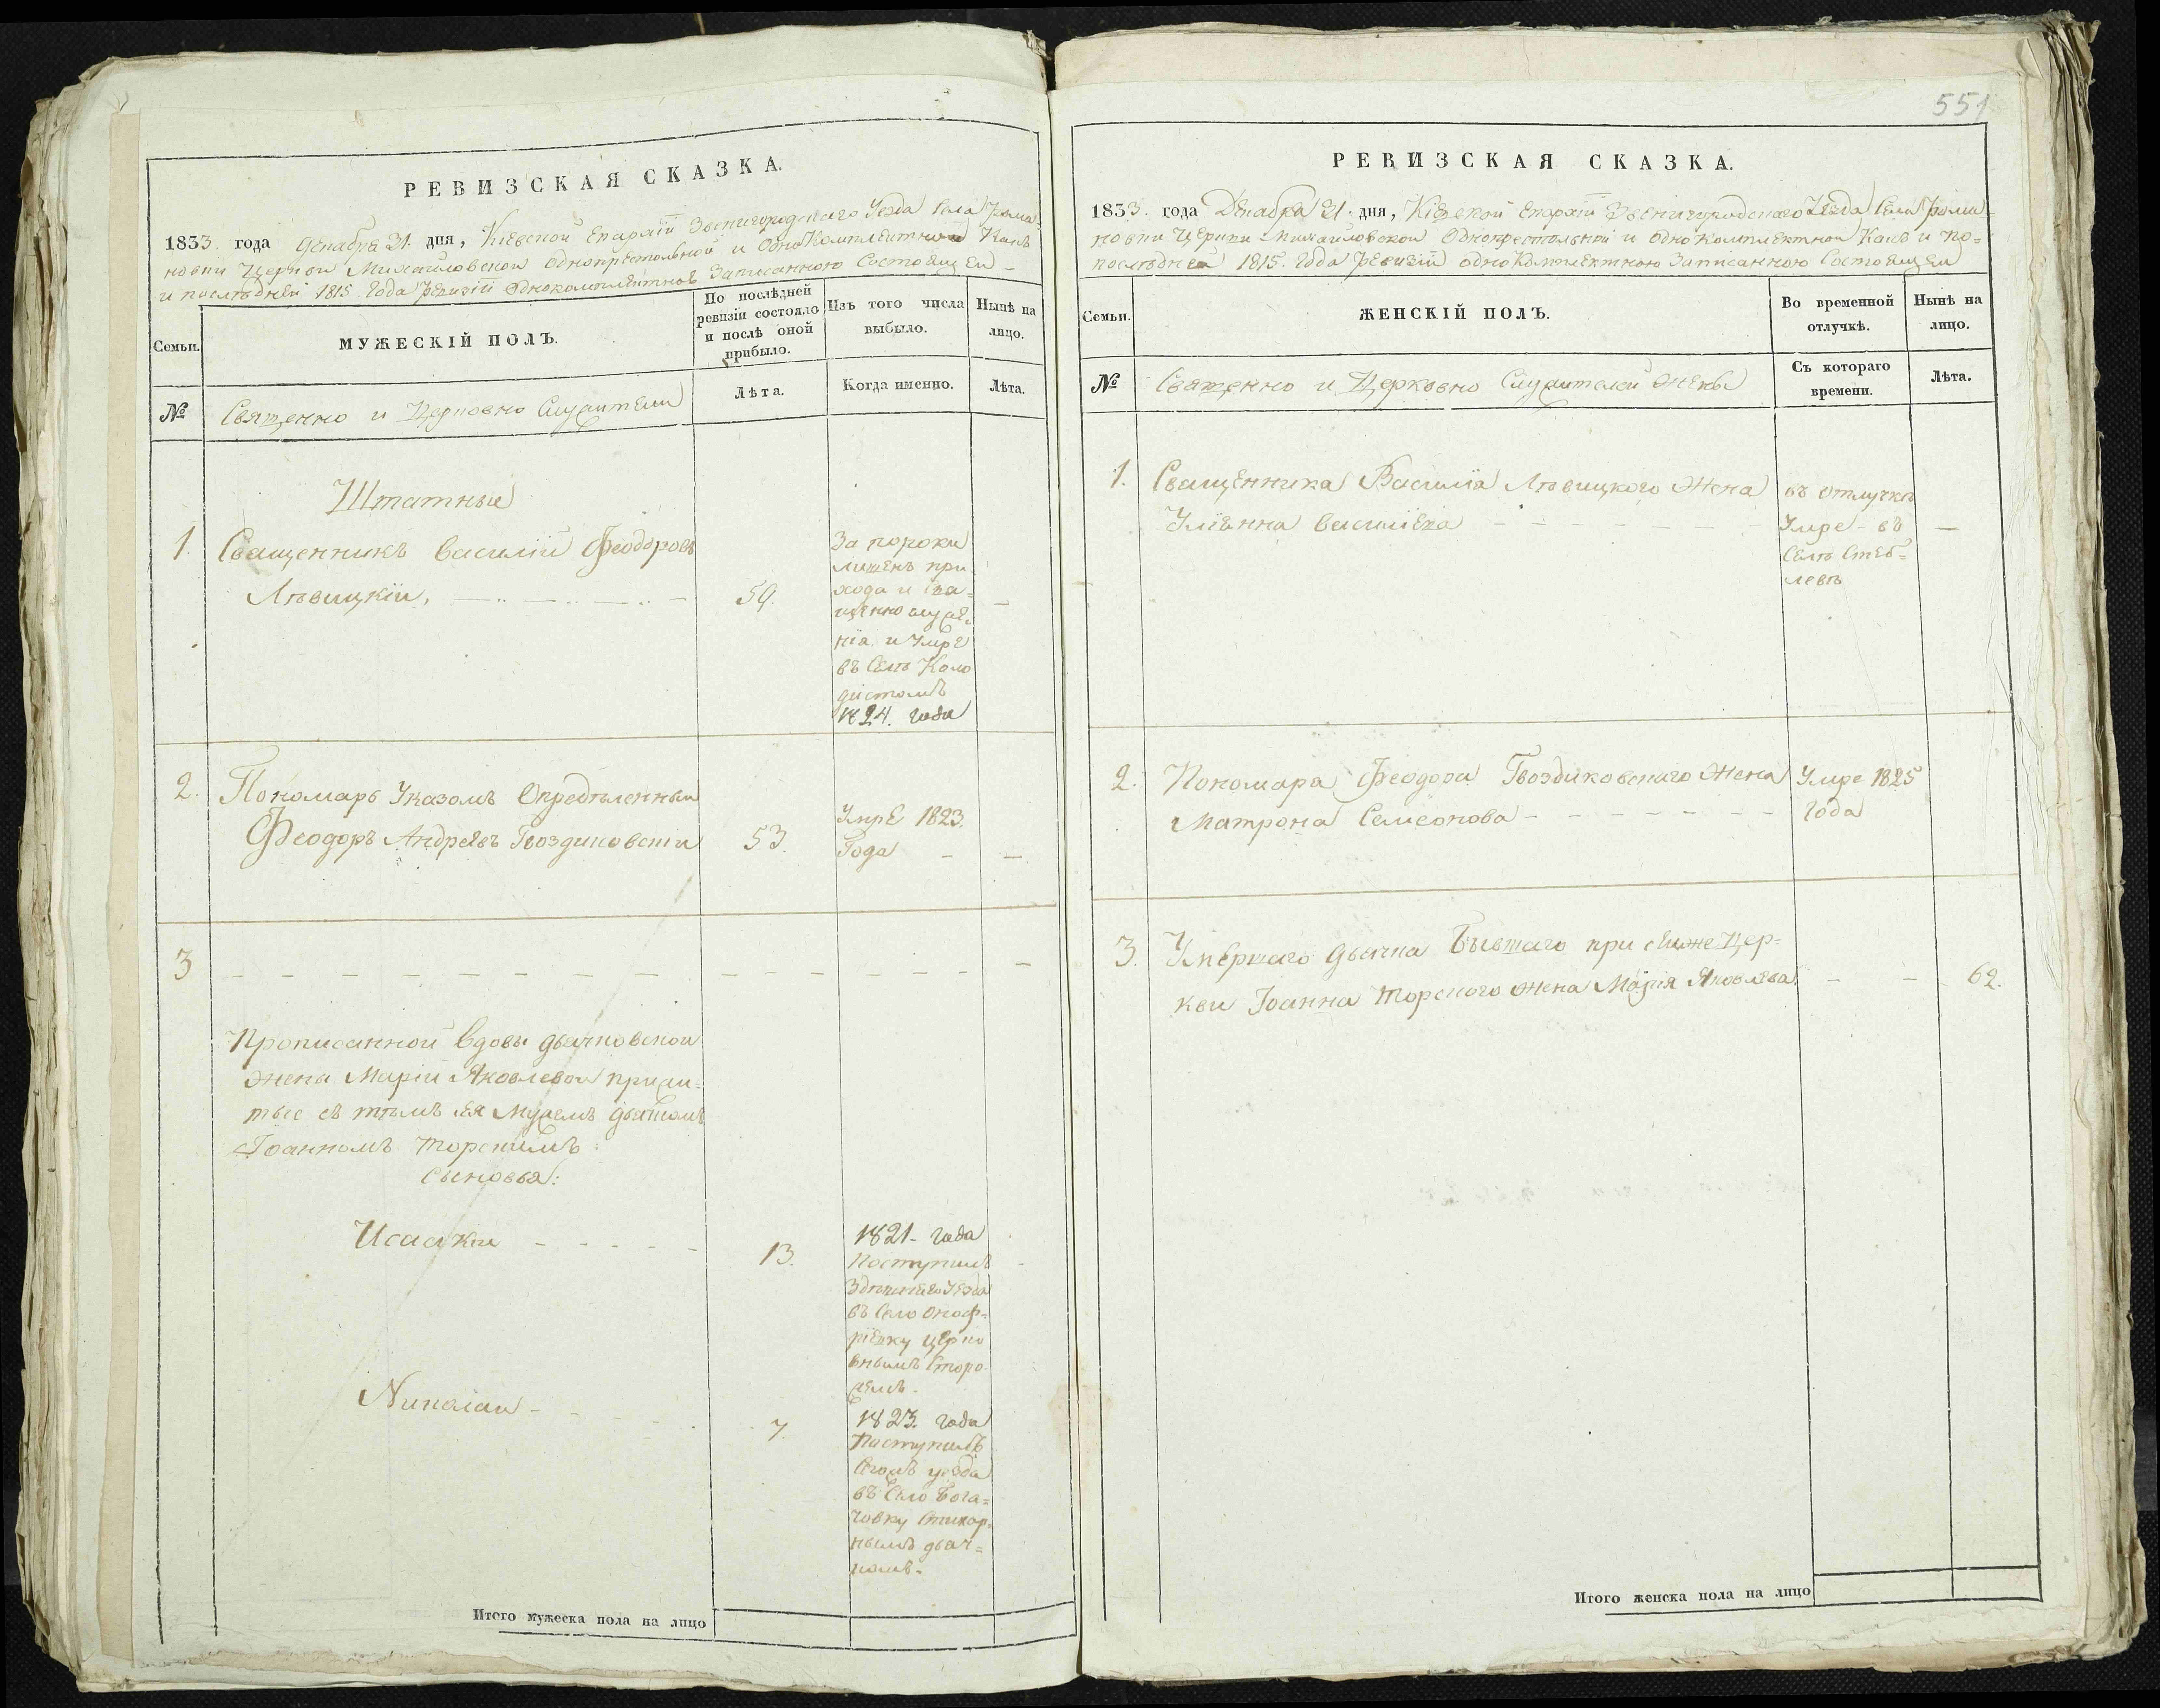 РЕВИЗСКАЯ СКАЗКА.
1833. года декабря 31. дня, Кіевской Епархіи Звенигородскаго Уезда Села Рома-
новки Церкви Михайловской однопрестольной и однокомплектной Какъ
и последней 1815. года ревизіи однокомплектною Записанною Состоящей
Семьи.
МУЖЕСКІЙ ПОЛЪ.
По послѣдней
ревизіи состояло
и послѣ оной
прибыло.
Изъ того числа
выбыло.
Нынѣ на
лицо.
№
Священно и Церковно Служители
Лѣта.
Когда именно.
Лѣта.
Штатные
1.
Священникъ Василій Феодоровъ
Лѣвицкій,
59.
За пороки
лишенъ при
хода и Свя-
щеннослуже-
нія и Умре
въ Селѣ Коло
дистомъ
1824. года
2.
Пономарь Указомъ Определенный
Феодоръ Андреевъ Гвоздиковскій
53.
Умре 1823.
Года
3
Прописанной вдовы дьячковской
жены Маріи Яковлевой прижи-
тые съ темъ ея мужемъ дьячкомъ
Іоанномъ Торскимъ:
Сыновья:
Исаакій
13.
1821. года
Поступилъ
Здешнего Уезда
въ Село Оноф-
ріевку церко
внымъ Сторо-
жемъ.
Николай
7.
1823. года
Поступилъ
Сегожъ уезда
въ Село Бога-
човку Стихар-
нымъ дьяч-
комъ.
Итого мужеска пола на лицо
551
РЕВИЗСКАЯ СКАЗКА.
1833. года Декабря 31. дня, Кіевской Епархіи Звенигородскаго Уезда Села Рома-
новки Церкви Михайловской Однопрестольной и однокомплектной Какъ и по-
последней 1815. года Ревизіи однокомплектною Записанною Состоящей
Семьи.
ЖЕНСКІЙ ПОЛЪ.
Во временной
отлучкѣ.
Нынѣ на
лицо.
№
Священно и Церковно Служителей жены
Съ котораго
времени.
Лѣта.
1.
Священника Василія Лѣвицкого Жена
Уліанна Васильева
въ отлучке
Умре - въ
Селѣ Стеб-
левѣ
2.
Пономара Феодора Гвоздиковскаго Жена
Матрона Семеонова
Умре 1825
года
3.
Умершаго дьячка Бывшаго при сейже Цер-
кви Іоанна Торского жена Марія Яковлева
62.
Итого женска пола на лицо